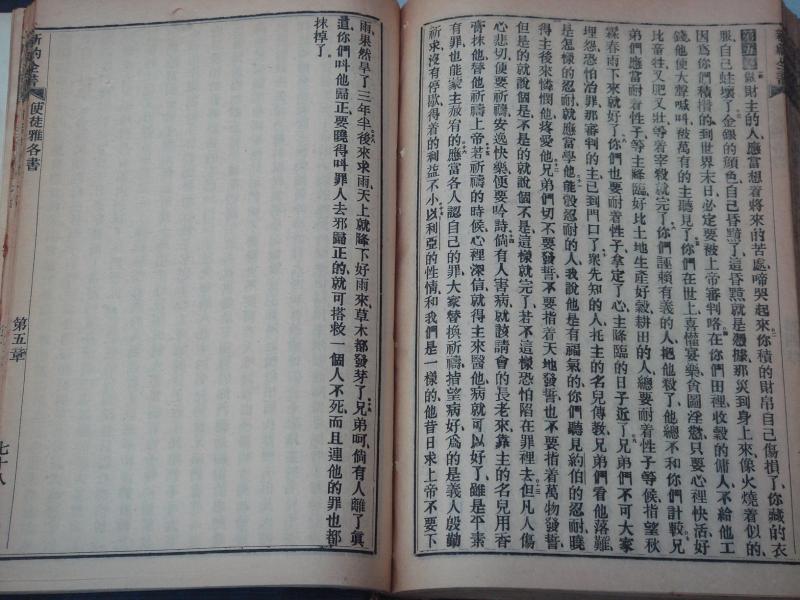 新約全書
財主的人、應當想着將來的苦處、啼哭起來、你積的財帛自己傷損了、你藏的衣
服、自己蛀壞了、金銀的顏色、自己昏黯了、這昏黯就是憑據、那災到身上來像火燒着似的、
因爲你們積攢的到世界末日、必定要被上帝審判咯、在你們田裡收穀的傭人、不給他工
錢、他便大聲喊叫、被萬有的主聽見了、你們在世上喜懽宴樂、貪圖淫慾、只要心裡快活、好
比畜牲、又肥又壯、等着宰殺就完了、你們誣賴有義的人、把他殺了、他總不和你們計較、兄
弟們應當耐着性子等主降臨、好比土地生產好穀、耕田的人總要耐着性子等候、指望秋
霖春雨下來就好了、你們也要耐着性子、拿定了心、主降臨的日子近了、兄弟們不可大家
埋怨、恐怕冶罪、那審判的主已到門口了、衆先知的人托主的名兒傳教、兄弟們看他落難、
是怎樣的忍耐、就應當學他、能彀忍耐的人、我說他是有福氣的、你們聽見約伯的忍耐、曉
得主後來憐憫他、疼愛他、兄弟們切不要發誓、不要指着天地發誓、也不要指着萬物發誓、
但是的就說是的、不是的就說個不是、這樣就完了、若不這樣、恐怕陷在罪裡去、但凡人傷
心悲切、便要祈禱、安逸快樂、便要吟詩、倘有人害病、就該請會的長老來、靠主的名兒用香
膏抹他、替他祈禱上帝、若祈禱的時候、心裡深信、就得主來醫他、病就可以好了、雖是平素
有罪、也能蒙主赦宥的、應當各人認自己的罪、大家替換祈禱、指望病好、爲的是義人殷勤
祈求、沒有停歇、得着的利益不小、以利亞的性情和我們是一樣的、他昔日求上帝不要下
雨、果然旱了三年半、後來求雨、天上就降下好雨來、草木都發芽了、兄弟呵、倘有人離了眞
道、你們叫他歸正、要曉得叫罪人去邪歸正的、就可搭救一個人不死、而且連他的罪也都
抹掉了、
新約全書
使徒雅各書
第五章
七十八